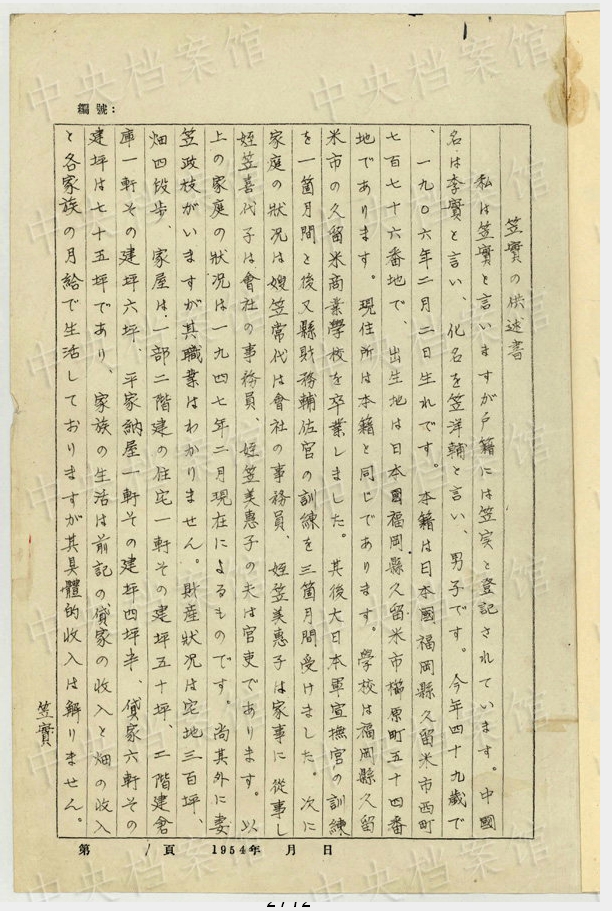 編號：
笠實の供述書
私は笠實と言いますが戸籍には笠実と登記されています。中國
名は李實と言い、化名を笠洋輔と言い、男子です。今年四十九歳で
、一九〇六年二月二日生れです。本籍は日本國福岡縣久留米市西町
七百七十六番地で、出生地は日本國福岡縣久留米市櫛原町五十四番
地であります。現住所は本籍と同じであります。學校は福岡縣久留
米市の久留米商業學校を卒業しました。其後大日本軍宣撫官の訓練
を一箇月間と後又縣財務輔佐官の訓練を三箇月間受けました。次に
家庭の狀況は嫂笠常代は會社の事務員、姪笠美惠子は家事に從事し
姪笠喜代子は會社の事務員、姪笠美惠子の夫は官吏であります。以
上の家庭の狀況は一九四七年二月現在によるものです。尚其外に妻
笠政枝がいますが其職業はわかりません。財産狀況は宅地三百坪、
畑四段歩、家屋は一部二階建の住宅一軒その建坪五十坪、二階建倉
庫一軒その建坪六坪、平家納屋一軒その建坪四坪半、貸家六軒その
建坪は七十五坪であり、家族の生活は前記の貸家の收入と畑の收入
と各家族の月給で生活しておりますが其具體的收入は解りません。
笠實
第 1 頁 1954年 月 日
中央档案馆